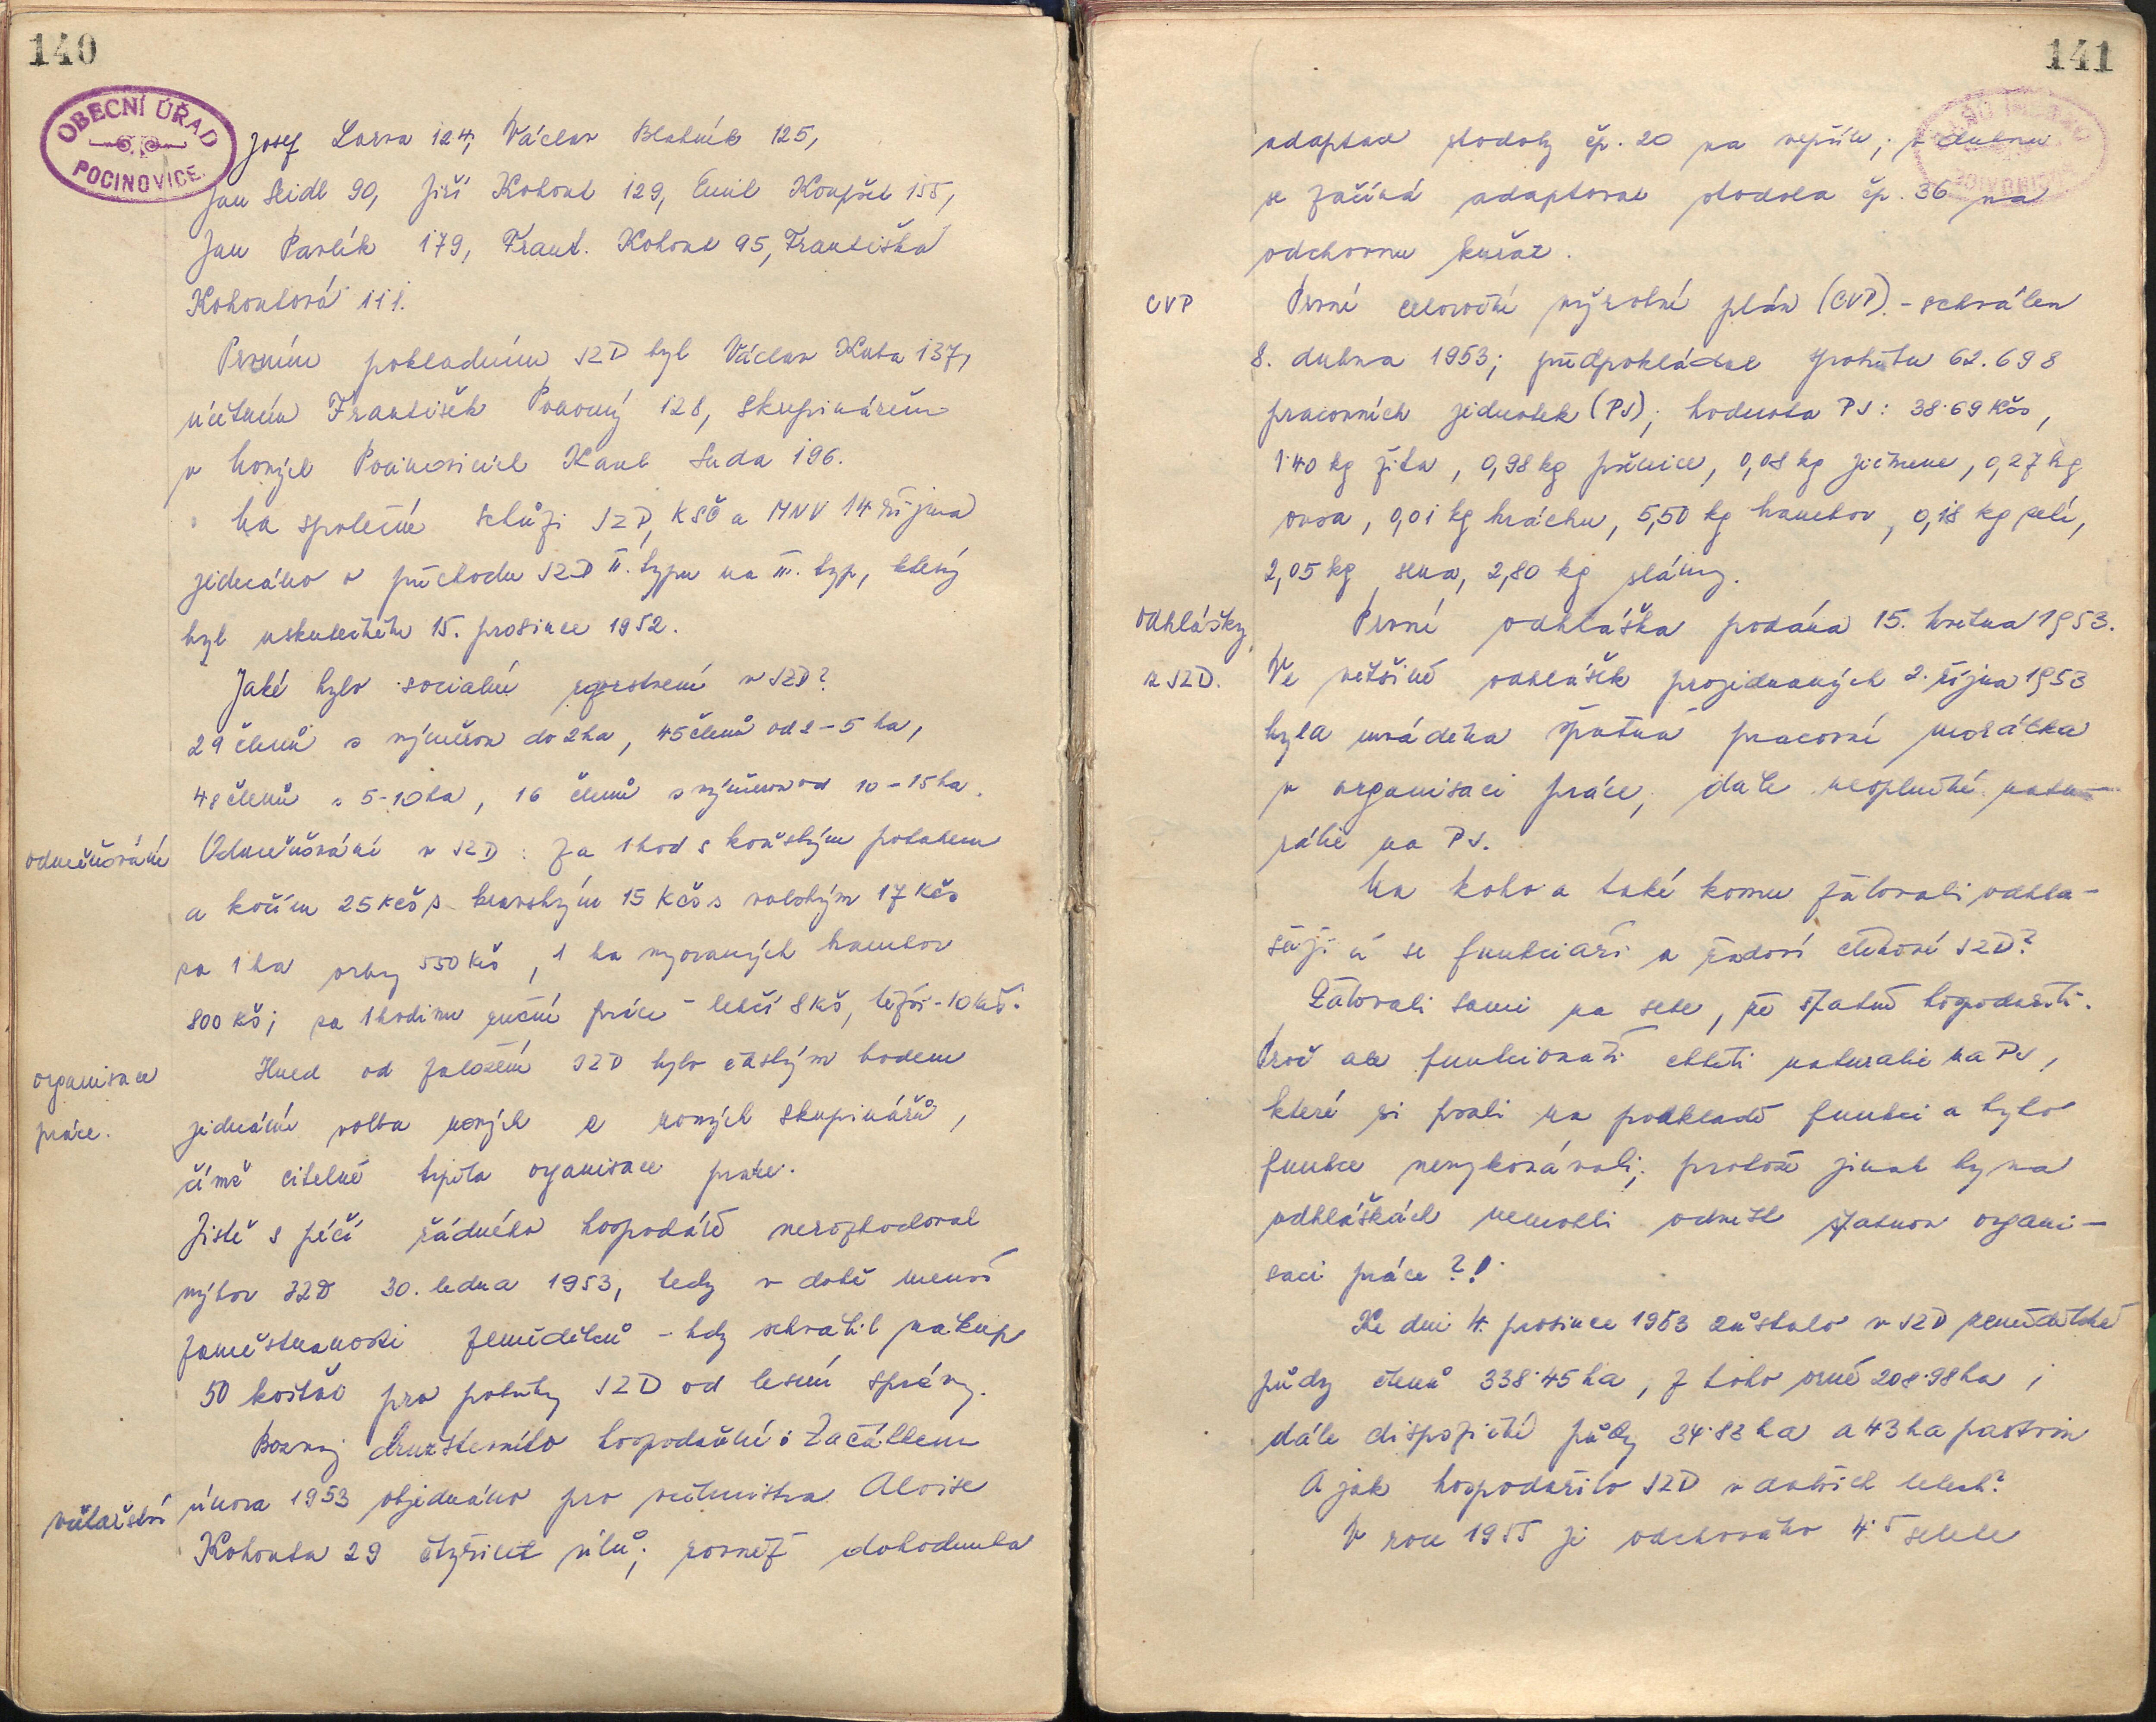 140
OBECNÍ ÚŘAD
POCINOVICE
Josef 124, Václav Blatník 125,
Jan Seidl 90, Jiří Kohout 129, Emil Konopřet 155,
Jan Pavlík 179, Frant. Kohout 95, Františka
Kohoutová 111.
Prvním pokladním JZD byl Václav Kuta 137,
účetním František 128, skupinářem
v horních Pocinovicích Karel Duda 196.
Na společné schůzi JZD, KSČ a MNV 14 října
jednáno o přechodu JZD II. typu na III. typ, který
byl uskutečněn 15. prosince 1952.
Jaké bylo socialní rozvrstvení v JZD?
29 členů s výměrou do 2 ha, 45 členů od 2-5 ha,
48 členů s 5-10 ha, 16 členů s výměrou od 10-15 ha.
odměňování
Odměňování v JZD: za 1 hod s koňským potahem
a kočím 25 Kčs, s kravským 15 Kčs s volským 17 Kčs
za 1 ha orby 550 Kčs, 1 ha vyoraných brambor
800 kčs; za 1 hodinu ruční práce - lehčí 8 Kčs, těžší - 10 kčs.
organisace
práce.
Hned od založení JZD bylo častým bodem
jednání volba nových a nových skupinářů,
čímž citelně trpěla organisace práce.
Jistě s péčí řádného hospodáře nerozhodoval
výbor JZD 30. ledna 1953, tedy v době menší
zaměstnanosti zemědělců - kdy schválil nákup
50 košťat pro potřeby JZD od lesní správy.
Rozvoj družstevního hospodaření: Začátkem
včelařství
února 1953 objednáno pro včelmistra Aloise
Kohouta 29 čtyřicet úlů; rovněž dohodnuta
141
adaptace stodoly čp. 20 na vepřín; v dubnu
se začíná adaptovat stodola čp. 36 na
odchovnu kuřat.
CVP
První celoroční výrobní plán (CVP) - schválen
8. dubna 1953; předpokládal spotřebu 62.698
pracovních jednotek (PJ); hodnota PJ: 38.69 Kčs,
1.40 kg žita, 0,98 kg pšenice, 0,08 kg ječmene, 0,27 kg
ovsa, 0,01 kg hrachu, 5,50 kg brambor, 0,18 kg zelí,
2,05 kg sena, 2,80 kg slámy.
Odhlášky
z JZD.
První odhláška podána 15. května 1953.
Ve většině odhlášek projednaných 2. října 1953
byla uváděna špatná pracovní morálka
v organisaci práce, dále neoplněné natu-
rálie na PJ.
Na koho a také komu žalovali odhla-
šující se funkcionáři a řadoví členové JZD?
Žalovali sami na sebe, že špatně hospodařili.
Proč ale funkcionáři chtěli naturalie na PJ,
které si psali na podkladě funkcí a bylo
funkce nevykonávali, protože jinak by na
odhláškách nemohli odnést špatnou organi-
saci práce?!
Ke dni 4. prosince 1953 zůstalo v JZD zemědělské
půdy členů 338.45 ha, z toho orné 208.98 ha,
dále disposiční půdy 34.83 ha a 43 ha pastvin
A jak hospodařilo JZD v dalších letech?
V roce 1955 je odchováno 4.5 selete